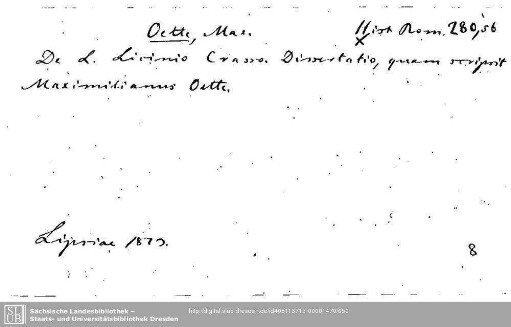 Oette, Max. Hist Rom. 280,56
De L. Licinio Crasso. Dissertatio, quam scripsit
Maximilianus Oette.
Lipsiae 1873.
8
Sächsische Landesbibliothek –
Staats- und Universitätsbibliothek Dresden